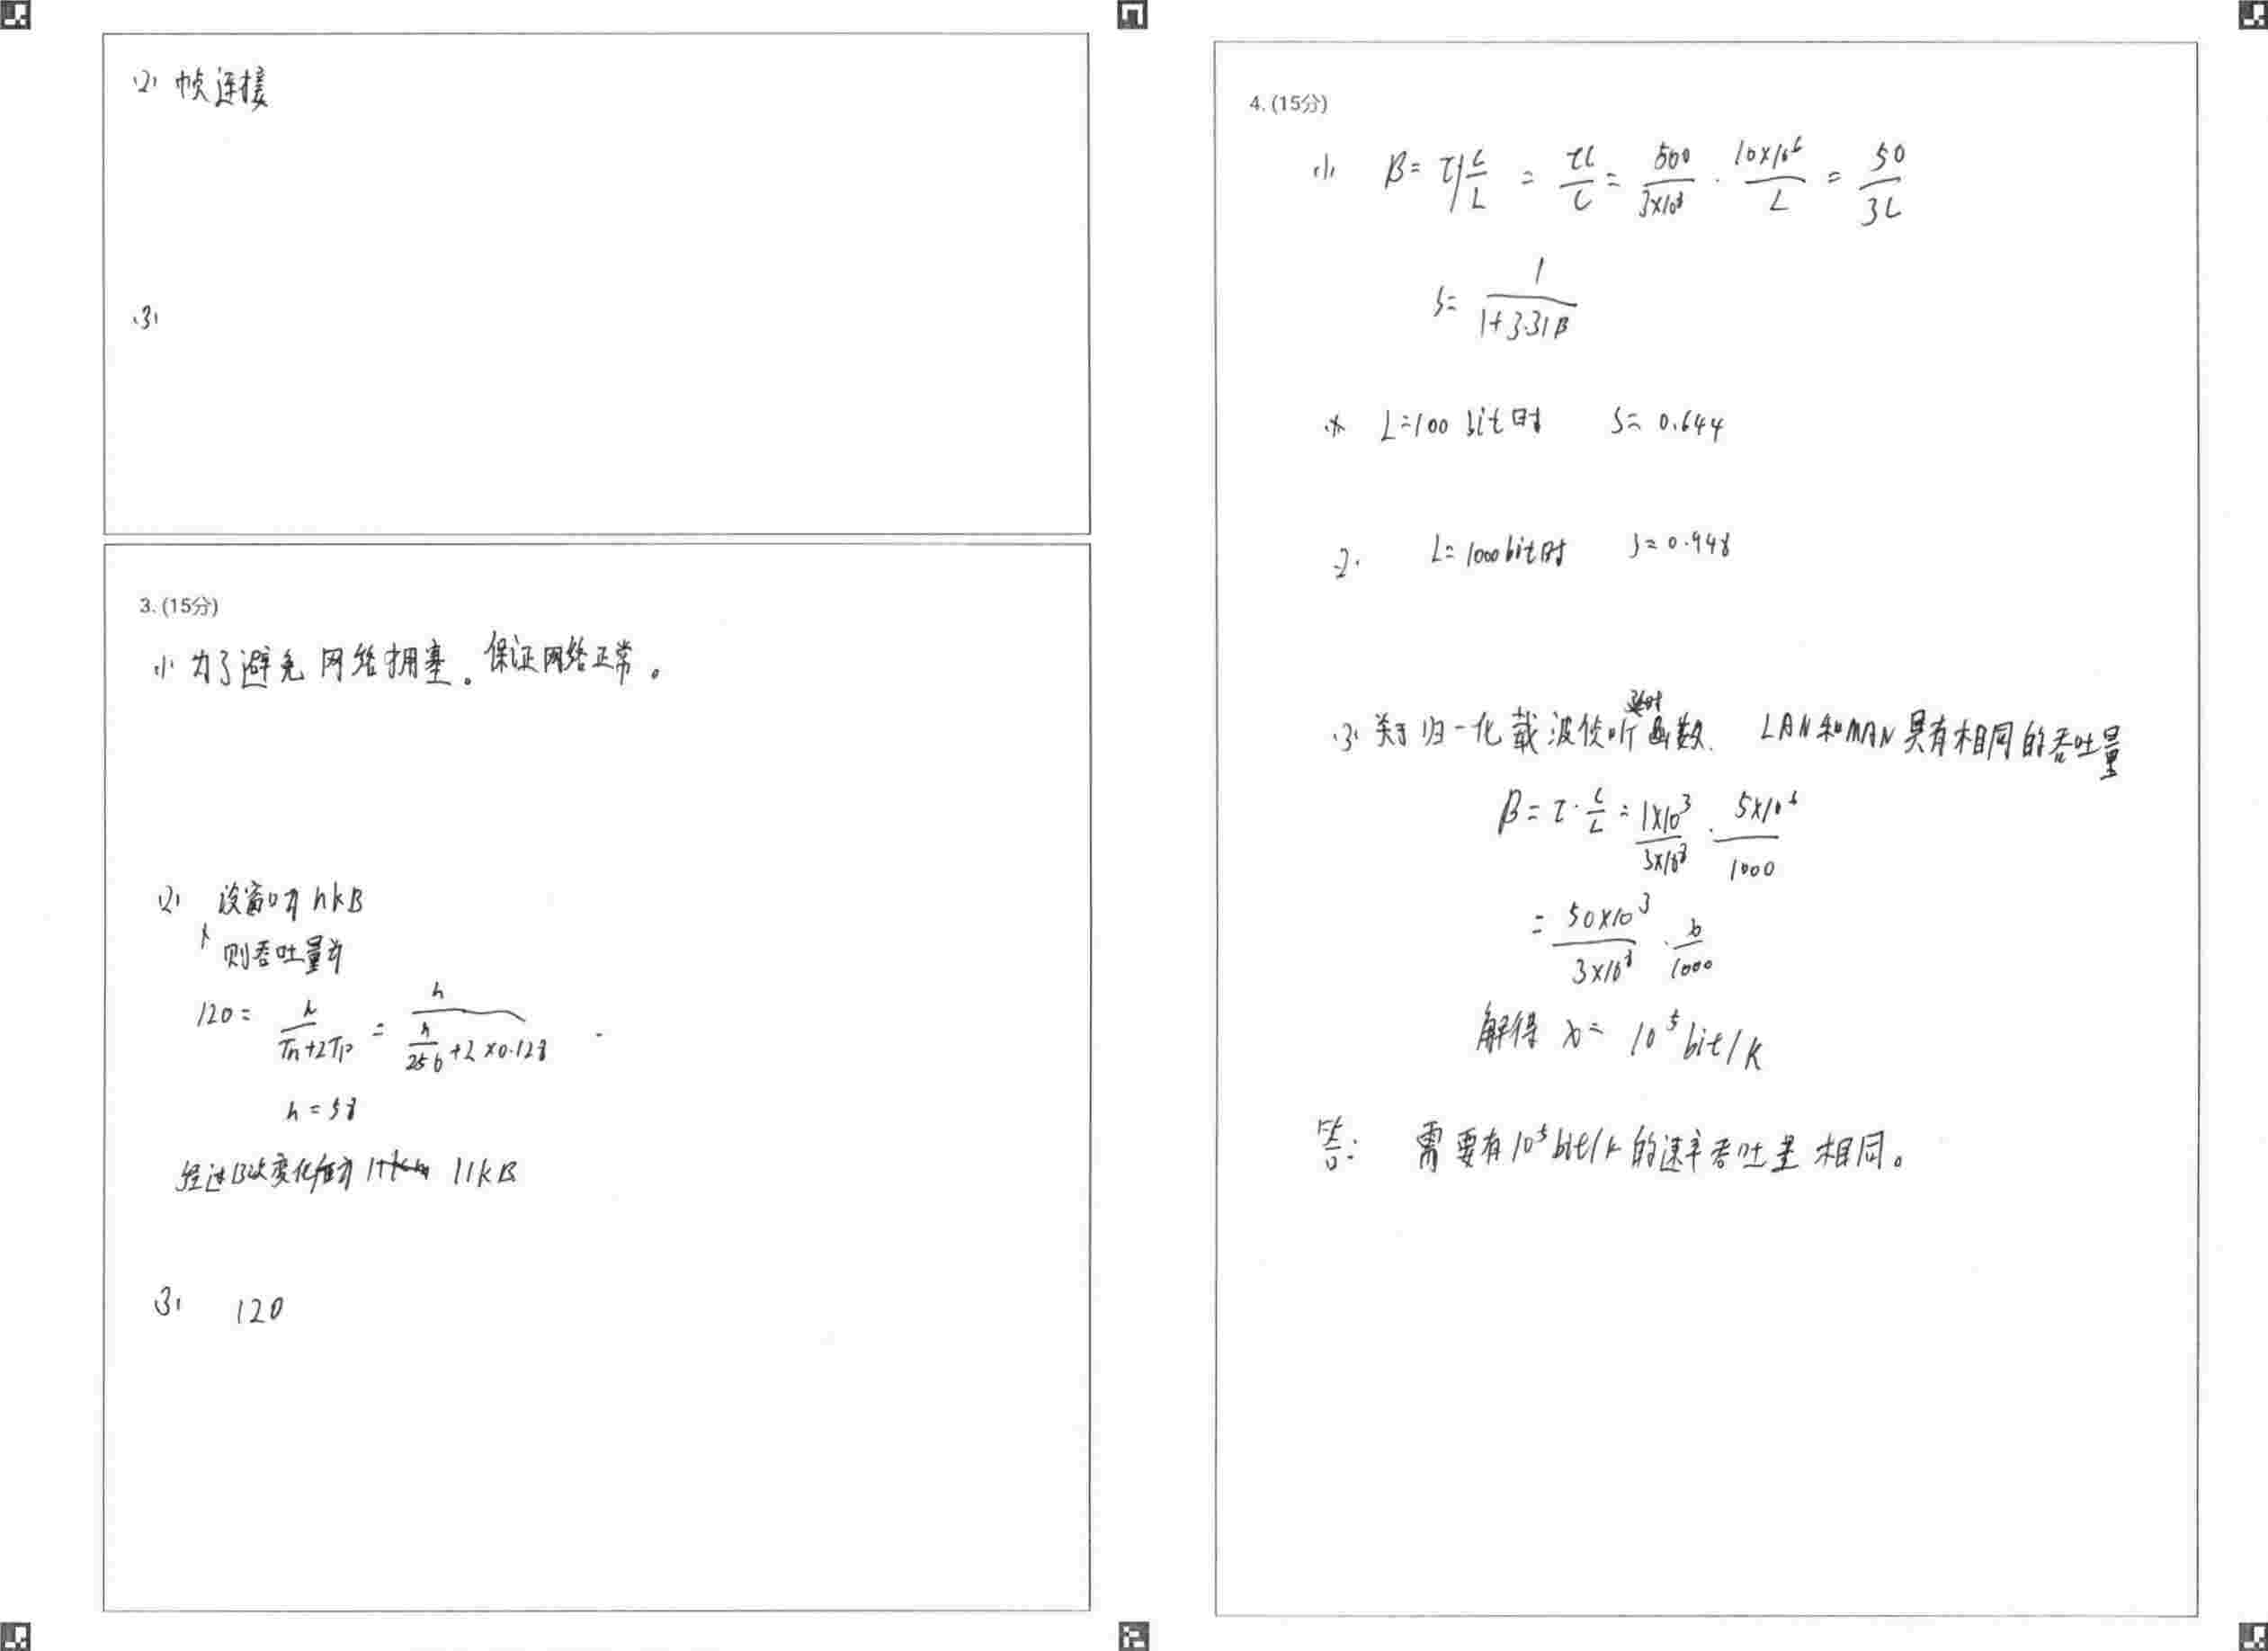 (2) 帧连接
(3)
3. (15分)
(1) 为了避免网络拥塞。保证网络正常。
(2) 设窗口为 nkB
则吞吐量为
120 = n/(Tn+2Tp) = n/(n/256 + 2×0.128)
n = 58
经过 变化值为 11kB
(3) 120
4. (15分)
(1) β = τ C/L = τC/L = 500/(3×10⁸) · 10×10⁶/L = 50/3L
S = 1/(1+3.31β)
L=100 bit时 S= 0.644
2. L= 1000bit时 S= 0.948
(3) 关于归一化载波侦听延时函数. LAN和MAN具有相同的吞吐量
β = τ · C/L = 1×10³/(3×10⁸) · 5×10⁶/1000
= 50×10³/(3×10⁸) · b/1000
解得 b= 10⁵ bit/k
答: 需要有10⁵bit/k的速率吞吐量相同。